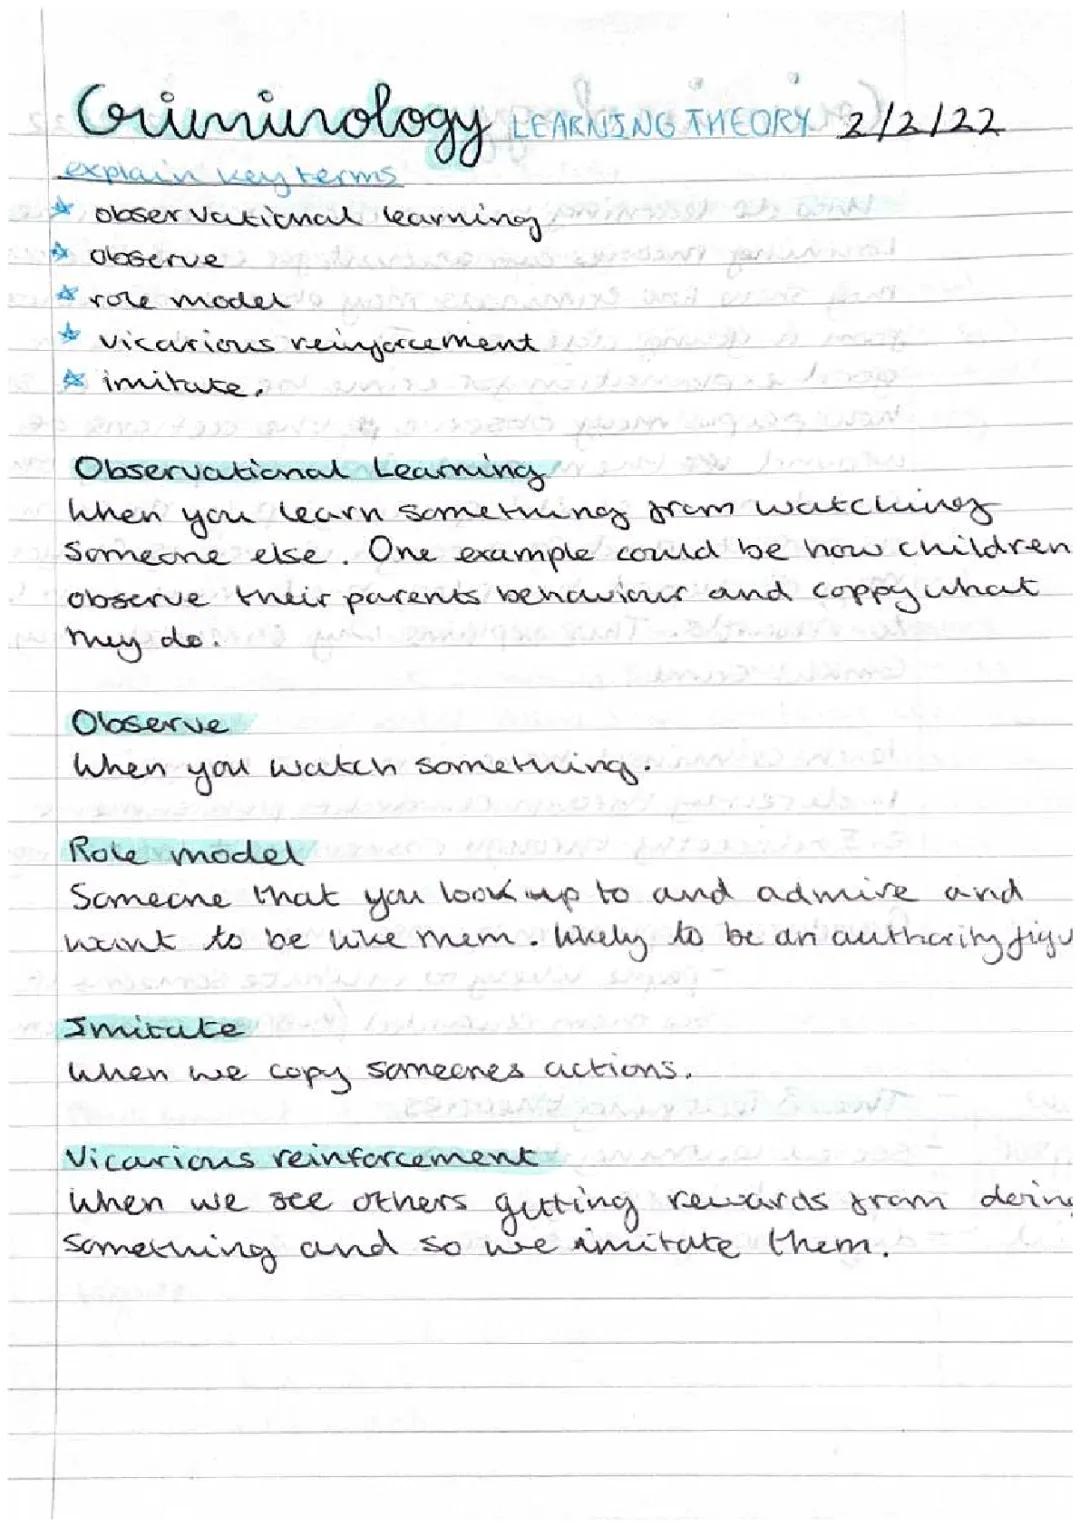 Criminology LEARNING THEORY 2/2/22
explain key terms
☆ observational learning
☆ observe
☆ role model
☆ vicarious reinforcement
☆ imitate.
Observational Learning
When you learn something from watching
someone else. One example could be how children
observe their parents behaviour and coppy what
they do.
Observe
When you watch something.
Role model
Someone that you look up to and admire and
want to be like them. likely to be an authority figu
Imitate
When we copy someones actions.
Vicarious reinforcement
When we see others getting rewards from doing
something and so we imitate them.